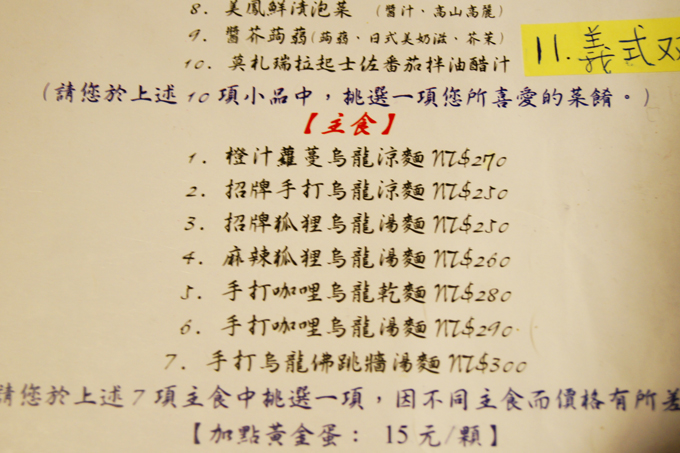 8. 美鳳鮮漬泡菜 (醬汁、高山高麗)
9. 醬芥蒟蒻(蒟蒻、日式美奶滋、芥茉)
11.義式双
10. 莫札瑞拉起士佐番茄拌油醋汁
(請您於上述10項小品中，挑選一項您所喜愛的菜餚。)
【主食】
1. 橙汁蘿蔓烏龍涼麵 NT$270
2. 招牌手打烏龍涼麵 NT$250
3. 招牌狐狸烏龍湯麵 NT$250
4. 麻辣狐狸烏龍湯麵 NT$260
5. 手打咖哩烏龍乾麵 NT$280
6. 手打咖哩烏龍湯麵 NT$290
7. 手打烏龍佛跳牆湯麵 NT$300
請您於上述7項主食中挑選一項，因不同主食而價格有所差
【加點黃金蛋： 15元/顆】